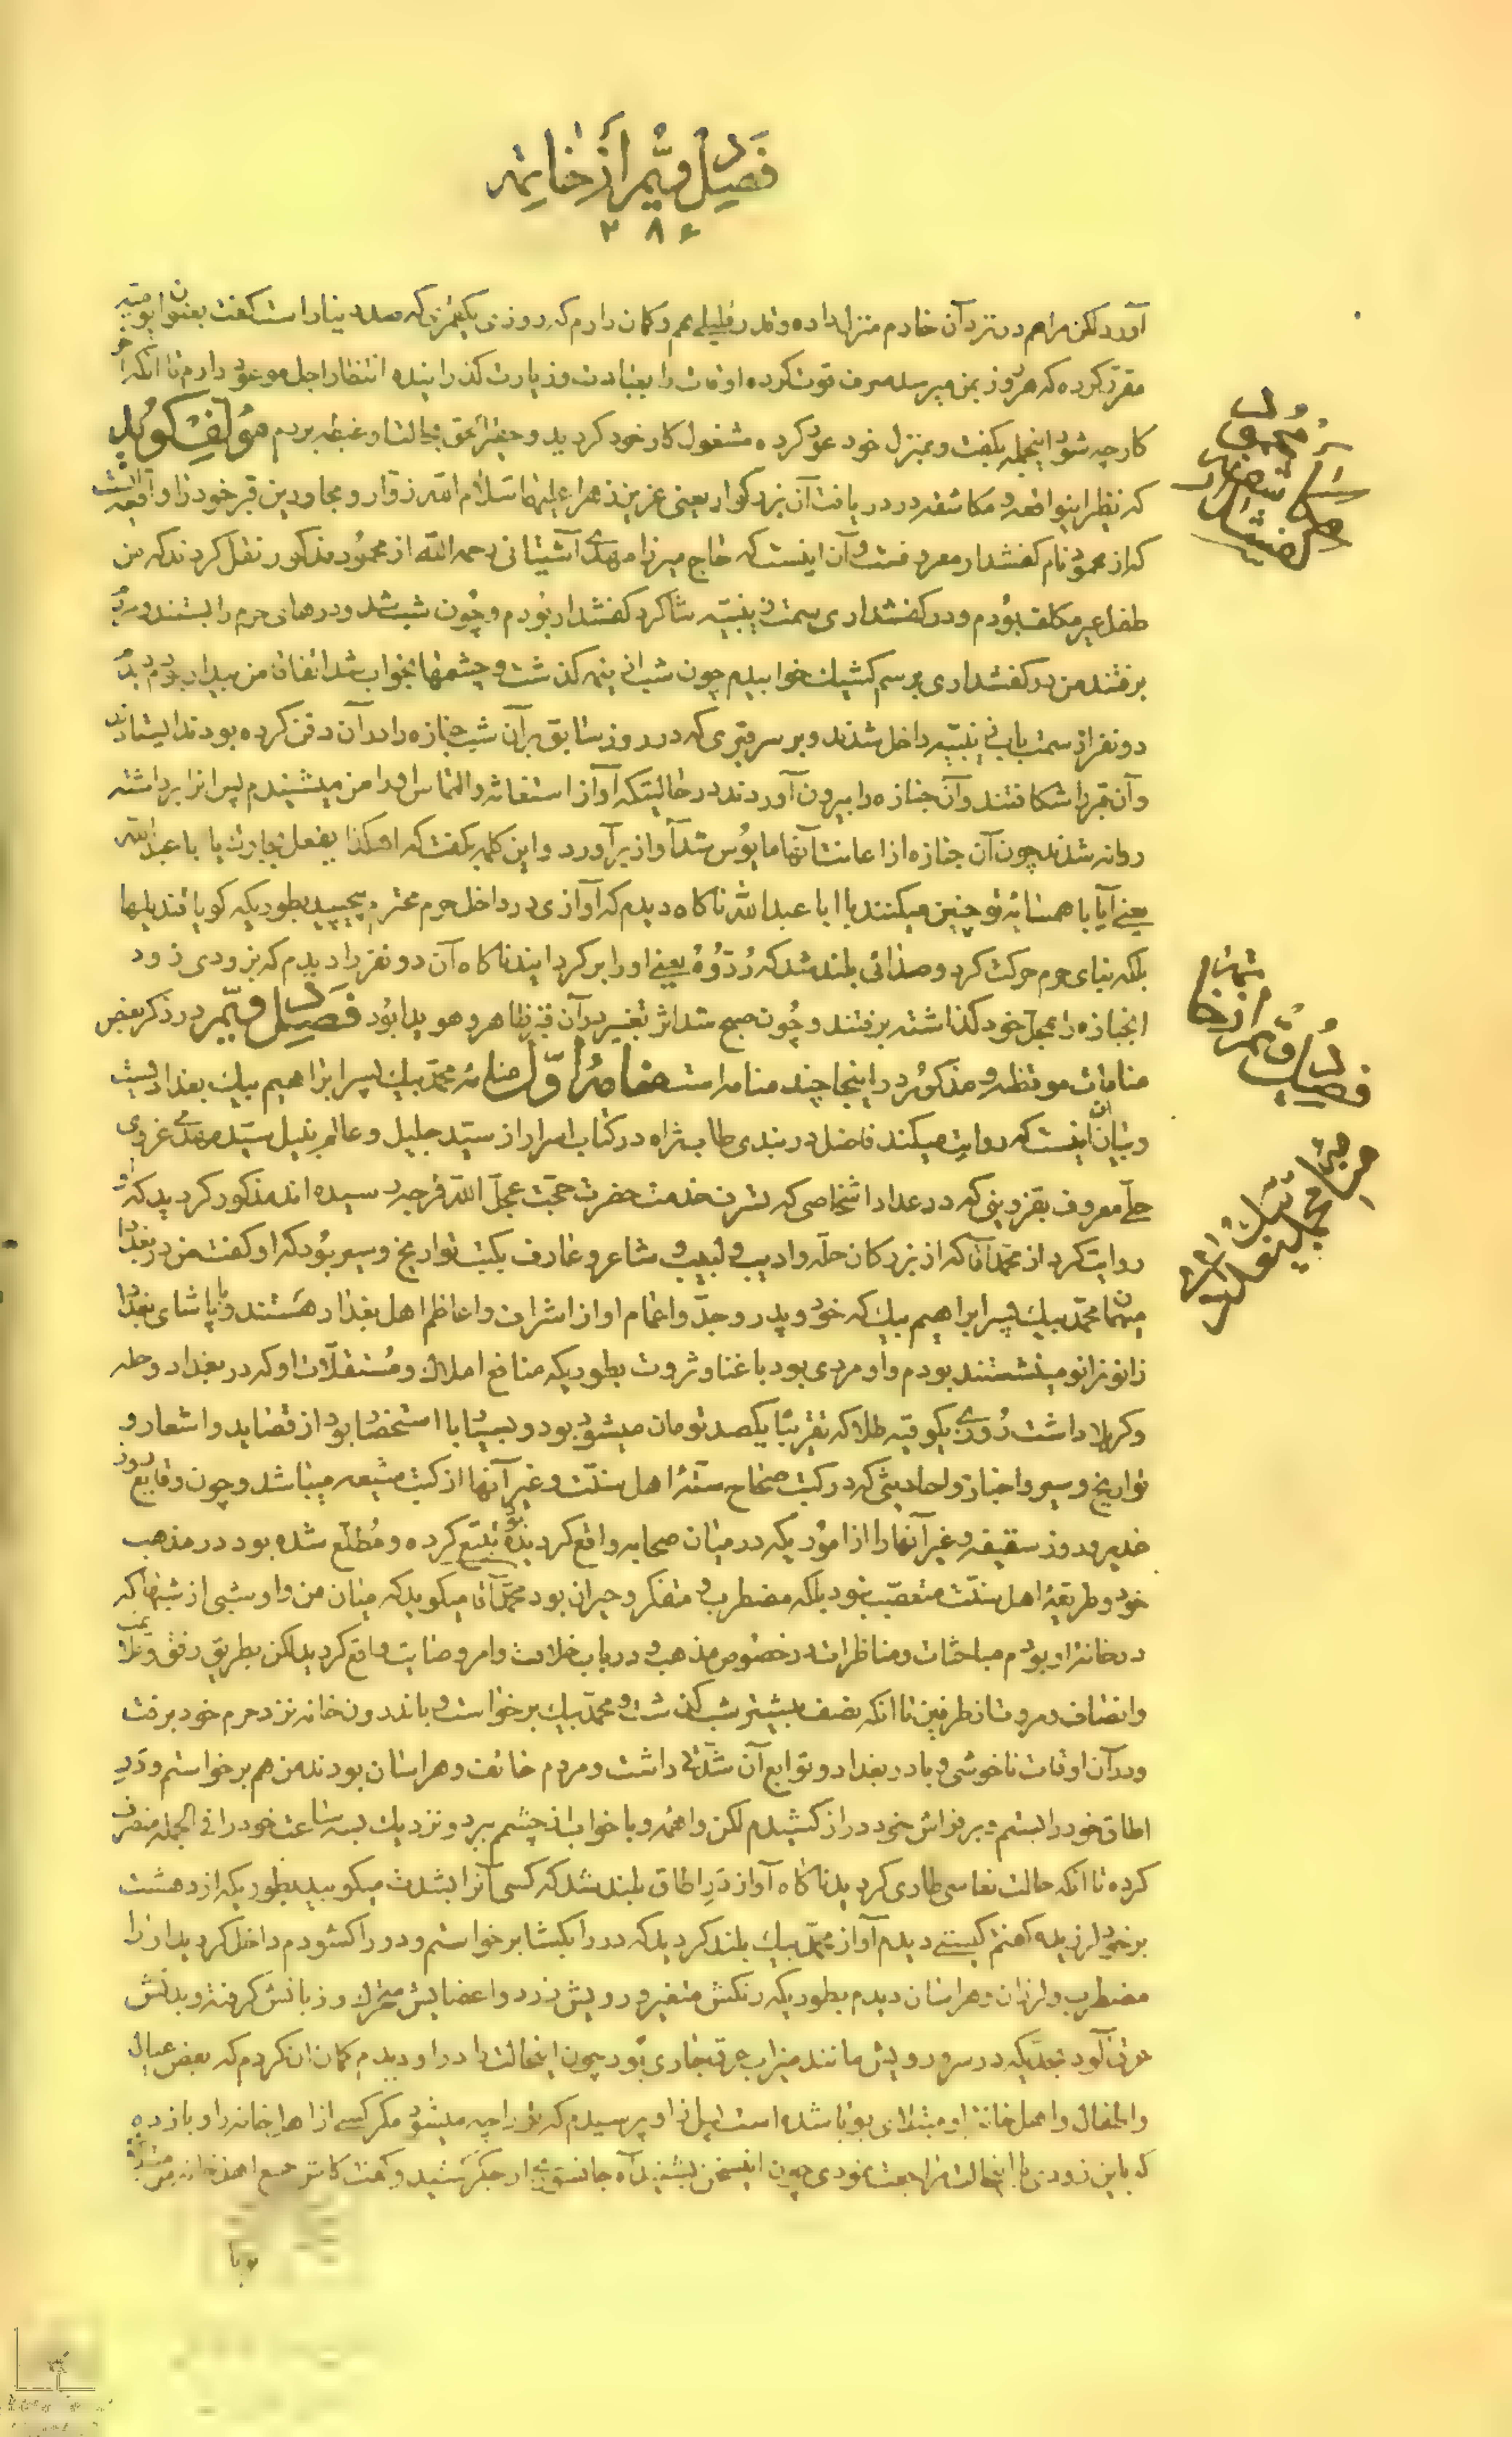 فصل دویّم از خاتمه
۲۸۶
آورد لکن مرا هم در نزد آن خادم منزل داده و قدر قلیلی هم و کمان دارم که روزی یکقمری که صد دینار است کفت بعنوان
مقرّر کرده که هر روز بمن میرسد صرف قوت کرده اوقات را بعبادت و زیارت کذرانیده انتظار اجل موعود دارم تا آنکه آخر
کار چه شود اینجمله بکفت و بمنزل خود عود کرده مشغول کار خود کردید و حالت او غبطه بردم مؤلف کوید
که نظیر اینواقعه و مکاشفه در دریافت آن بزرکوار یعنی عزیز زهرا علیهما سلام الله زوّار و مجاورین قبر خود را واقعه
که از محمود نام کفشدار معروفست و آن اینست که حاج میرزا مهدی آشتیانی رحمه الله از محمود مذکور نقل کردند که من
طفل غیر مکلف بودم و در کفشداری سمت زینبیّه شاکرد کفشدار بودم و چون شب شد و درهای حرم را بستند و مردم
برفتند من در کفشداری برسم کشیک خوابیدم چون شب از نیمه کذشت و چشمها بخواب شد اتفاقا من بیدار بودم دیدم
دو نفر از سمت باب زینبیّه داخل شدند و بر سر قبری که در روز سابق بر آن شب جنازه را در آن دفن کرده بودند ایستادند
و آن قبر را شکافتند و آن جنازه را بیرون آوردند در حالتیکه آواز استغاثه و التماس او را من میشنیدم پس انرا برداشته
روانه شدند چون آن جنازه از اعانت آنها مایوس شد آواز برآورد و این کلمه بکفت که اهکذا یفعل بجارک یا اباعبدالله
یعنی آیا با همسایه تو چنین میکنند یا ابا عبدالله ناکاه دیدم که آوازی در داخل حرم محترم پیچید بطوریکه کویا قندیلها
بلکه بنای حرم حرکت کرد و صدائی بلند شد که رُدّوُهُ یعنی او را برکردانید ناکاه آن دو نفر را دیدم که بزودی زود
انجنازه را بمحل خود کذاشته برفتند و چون صبح شد اثر تغییر در آن قبر ظاهر و هویدا بود فصل دویّم در ذکر بعض
منامات موقظه و مذکور در اینجا چند منامه است منامهٔ اوّل منامهٔ محمّد بیک پسر ابراهیم بیک بغدادیست
و بیان آن اینست که روایت میکند فاضل دربندی طاب ثراه در کتاب اسرار از سیّد جلیل و عالم نبیل سیّد مهدی غروی
حلّی معروف بقزوینی که در عداد اشخاصی که بشرف خدمت حضرت حجّت عجّل الله فرجه رسیده اند مذکور کردید که او
روایت کرد از محمّد آقا که از بزرکان حلّه و ادیب و لبیب و شاعر و عارف بکتب تواریخ و سیر بود که او کفت من در بغداد
میهمان محمّد بیک پسر ابراهیم بیک که خود و پدر و جدّ و اعمام او از اشراف و اعاظم اهل بغداد هستند و با پاشای بغداد
زانو بزانو مینشستند بودم و او مردی بود با غنا و ثروت بطوریکه منافع املاک و مستقلّات او که در بغداد و حلّه
و کربلا داشت روزی یکوقیه طلا که تقریباً یکصد تومان میشود بود و بسیار با استحضار بود از قصاید و اشعار و
تواریخ و سیر و اخبار و احادیثی که در کتب صحاح ستّهٔ اهل سنّت و غیر آنها از کتب شیعه میباشد و چون وقایع روز
غدیر و روز سقیفه و غیر آنها را از اموریکه در میان صحابه واقع کردیده بود تتبّع کرده و مطّلع شده بود در مذهب
خود و طریقهٔ اهل سنّت متعصّب نبود بلکه مضطرب و متفکر و حیران بود محمّد آقا میکوید که میان من و او شبی از شبها که
در خانهٔ او بودم مباحثات و مناظرات در خصوص مذهب و در باب خلافت و امر وصایت واقع کردید لکن بطریق رفق و ملایمت
و انصاف و مروّت از طرفین تا آنکه نصف بیشتر شب کذشت و محمّد بیک برخواست و باندرون خانه نزد حرم خود برفت
و در آن اوقات ناخوشی وبا در بغداد و توابع آن شدّتی داشت و مردم خائف و هراسان بودند من هم برخواستم و درِ
اطاق خود را بستم و بر فراش خود دراز کشیدم لکن واهمهٔ وبا خواب از چشم ببرد و نزدیک بسه ساعت خود را فی الجمله منصرف
کرده تا آنکه حالت نعاسی طاری کردید ناکاه آواز درِ اطاق بلند شد که کسی آنرا بشدّت میکوبید بطوریکه از دهشت
بر خود لرزیده کفتم کیستی دیدم آواز محمّد بیک بلند کردید که در را بکشا برخواستم و در را کشودم داخل کردید او را
مضطرب و لرزان و هراسان دیدم بطوریکه رنکش متغیر و رویش زرد و اعضایش متزلزل و زبانش کرفته و بدنش
عرق آلود بحدّیکه در سر و رویش مانند میزاب عرق جاری بود چون اینحالت را در او دیدم کمان آن کردم که بعض عیال
و اطفال و اهل خانهٔ او مبتلای بوبا شده است پس از او پرسیدم که تو را چه میشود مکر کسی از اهل خانه را وبا زده
که باین زودی با اینحالت مراجعت نمودی چون اینسخن بشنید آه جانسوزی از جکر کشید و کفت کاش جمیع اهل خانه من
وبا
مکاشفه محمود کفشدار
فصل دویّم از خاتمه
منامهٔ محمّد بیک بغدادی